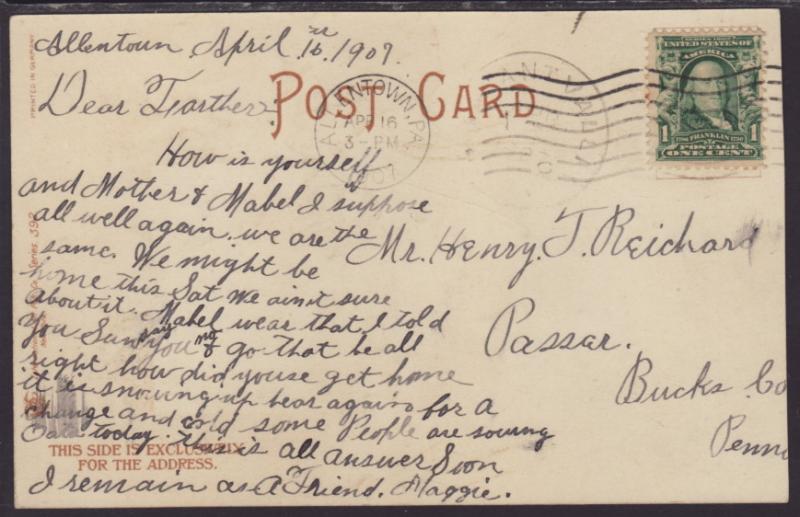 Allentown April 16th, 1907.
PRINTED IN GERMANY
POST CARD
Dear Farther:
ALLENTOWN, PA.
APR 16
3-PM
1907
UNITED STATES OF
AMERICA
FRANKLIN
1 1
POSTAGE
ONE CENT
How is yourself
and Mother & Mabel I suppose
all well again. we are the
same. We might be
home this Sat We ain't sure
about it. Mabel wear that I told
You Sun say you no & go that be all
right how did youse get home
it is snowing up hear again for a
change and cold some People are sowing
Oats today. this is all answer Soon
I remain as A Friend. Maggie.
Mr. Henry. T. Reichard
Passer.
Bucks. Co
Penn
Series 392
THIS SIDE IS EXCLUSIVELY
FOR THE ADDRESS.